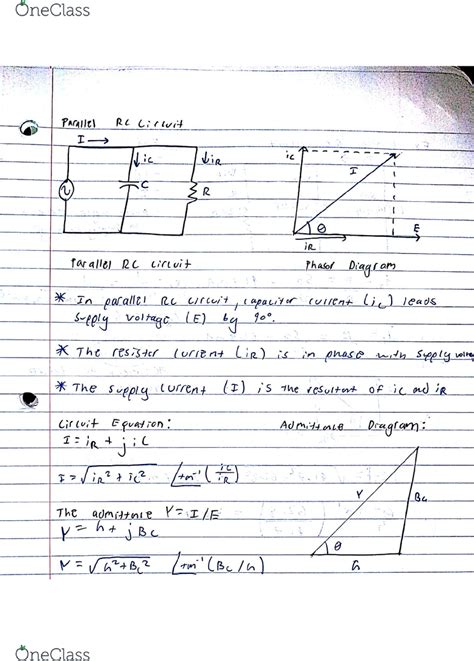 OneClass
Parallel RC Circuit
I →
↓ic
↓iR
C
R
ic
I
θ
E
iR
Parallel RC circuit
Phasor Diagram
* In parallel RC circuit, capacitor current (ic) leads
supply voltage (E) by 90°.
* The resistor current (iR) is in phase with supply voltage
* The supply current (I) is the resultant of ic and iR
Circuit Equation:
Admittance Diagram:
I = iR + j iC
I = √iR² + ic² ∠tan⁻¹ (ic/iR)
The admittance Y = I/E
Y = G + j Bc
Y = √G² + Bc² ∠tan⁻¹ (Bc/G)
Y
Bc
θ
G
OneClass